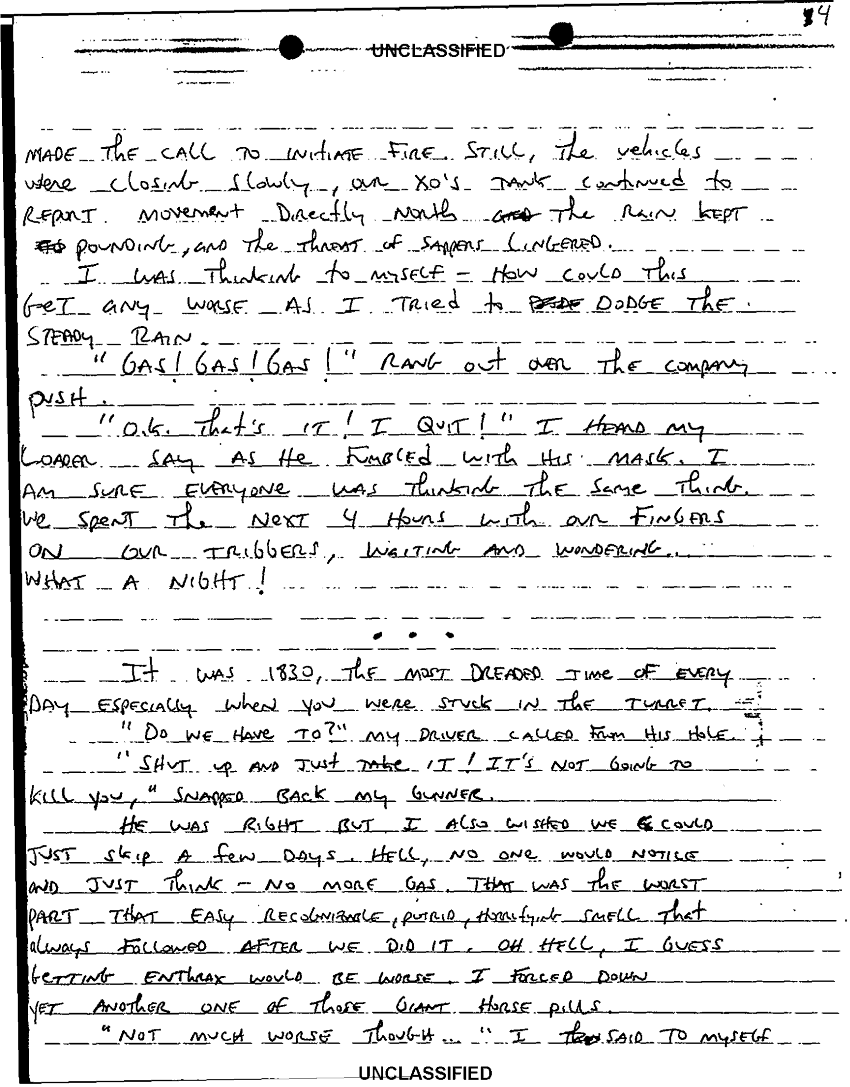 34
UNCLASSIFIED
MADE THE CALL TO INITIATE FIRE. STILL, THE vehicles
were closing slowly, our XO's TANK continued to
REPORT movement Directly North THE RAIN KEPT
POUNDING, AND THE THREAT OF SAPPERS LINGERED.
I WAS Thinking to MYSELF - HOW COULD THIS
GET ANY WORSE AS I TRIED to DODGE THE
STEADY RAIN.
"GAS! GAS! GAS!" RANG out OVER THE COMPANY
PUSH.
"O.K. That's IT! I QUIT!" I HEARD MY
LOADER SAY AS HE FUMBLED WITH HIS MASK. I
AM SURE EVERYONE WAS Thinking THE Same Thing.
We Spent The NEXT 4 Hours with our FINGERS
ON OUR TRIGGERS, WAITING AND WONDERING...
WHAT A NIGHT!
• • •
It WAS 1830, THE MOST DREADED TIME OF EVERY
DAY ESPECIALLY when you were STUCK IN THE TURRET.
"DO WE HAVE TO?" MY DRIVER CALLED From HIS HOLE.
"SHUT UP AND JUST TAKE IT! IT'S NOT GOING TO
KILL YOU," SNAPPED BACK MY GUNNER.
HE WAS RIGHT BUT I ALSO WISHED WE COULD
JUST SKIP A few DAYS. HELL, NO ONE WOULD NOTICE
AND JUST Think - NO MORE GAS. THAT WAS THE WORST
PART THAT EASY RECOGNIZABLE, PUTRID, Horrifying SMELL That
always FOLLOWED AFTER WE DID IT. OH HELL, I GUESS
GETTING ENTHRAX WOULD BE WORSE. I FORCED DOWN
YET ANOTHER ONE OF THOSE GIANT HORSE PILLS.
"NOT MUCH WORSE THOUGH..." I SAID TO MYSELF
UNCLASSIFIED